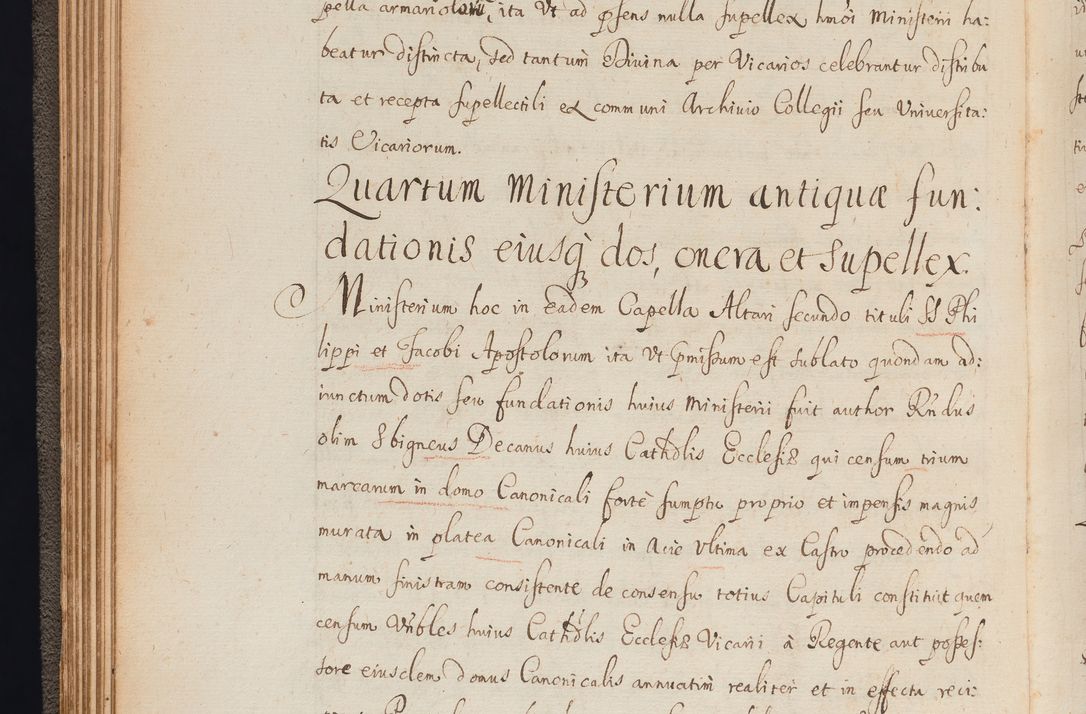 pella armariolum, ita Vt ad p̃sens nulla supellex hmõi Ministerii ha:
beatur distincta, sed tantum Divina per Vicarios celebrantur distribu
ta et recepta supellectili ex communi Archivio Collegii seu Universita:
tis Vicariorum.
Quartum Ministerium antiquæ fun:
dationis eiusq̃ dos, onera et supellex.
Ministerium hoc in eadem Capella Altari secundo tituli SS Phi
lippi et Jacobi Apostolorum ita Vt p̃missum est sublato quondam ad:
iunctum dotis seu fundationis huius Ministerii fuit author Rñdus
olim Sbigneus Decanus huius Cathõlis Ecclesiæ qui censum trium
marcarum in domo Canonicali forte sumptu proprio et impensis magnis
murata in platea Canonicali in acie Vltima ex Castro procedendo ad
manum sinistram consistente de consensu totius Capituli constituit quem
censum Vñbles huius Cathõlis Ecclesiæ Vicarii à Regente aut posses:
sore eiusdem domus Canonicalis annuatim realiter et in effectu reci: